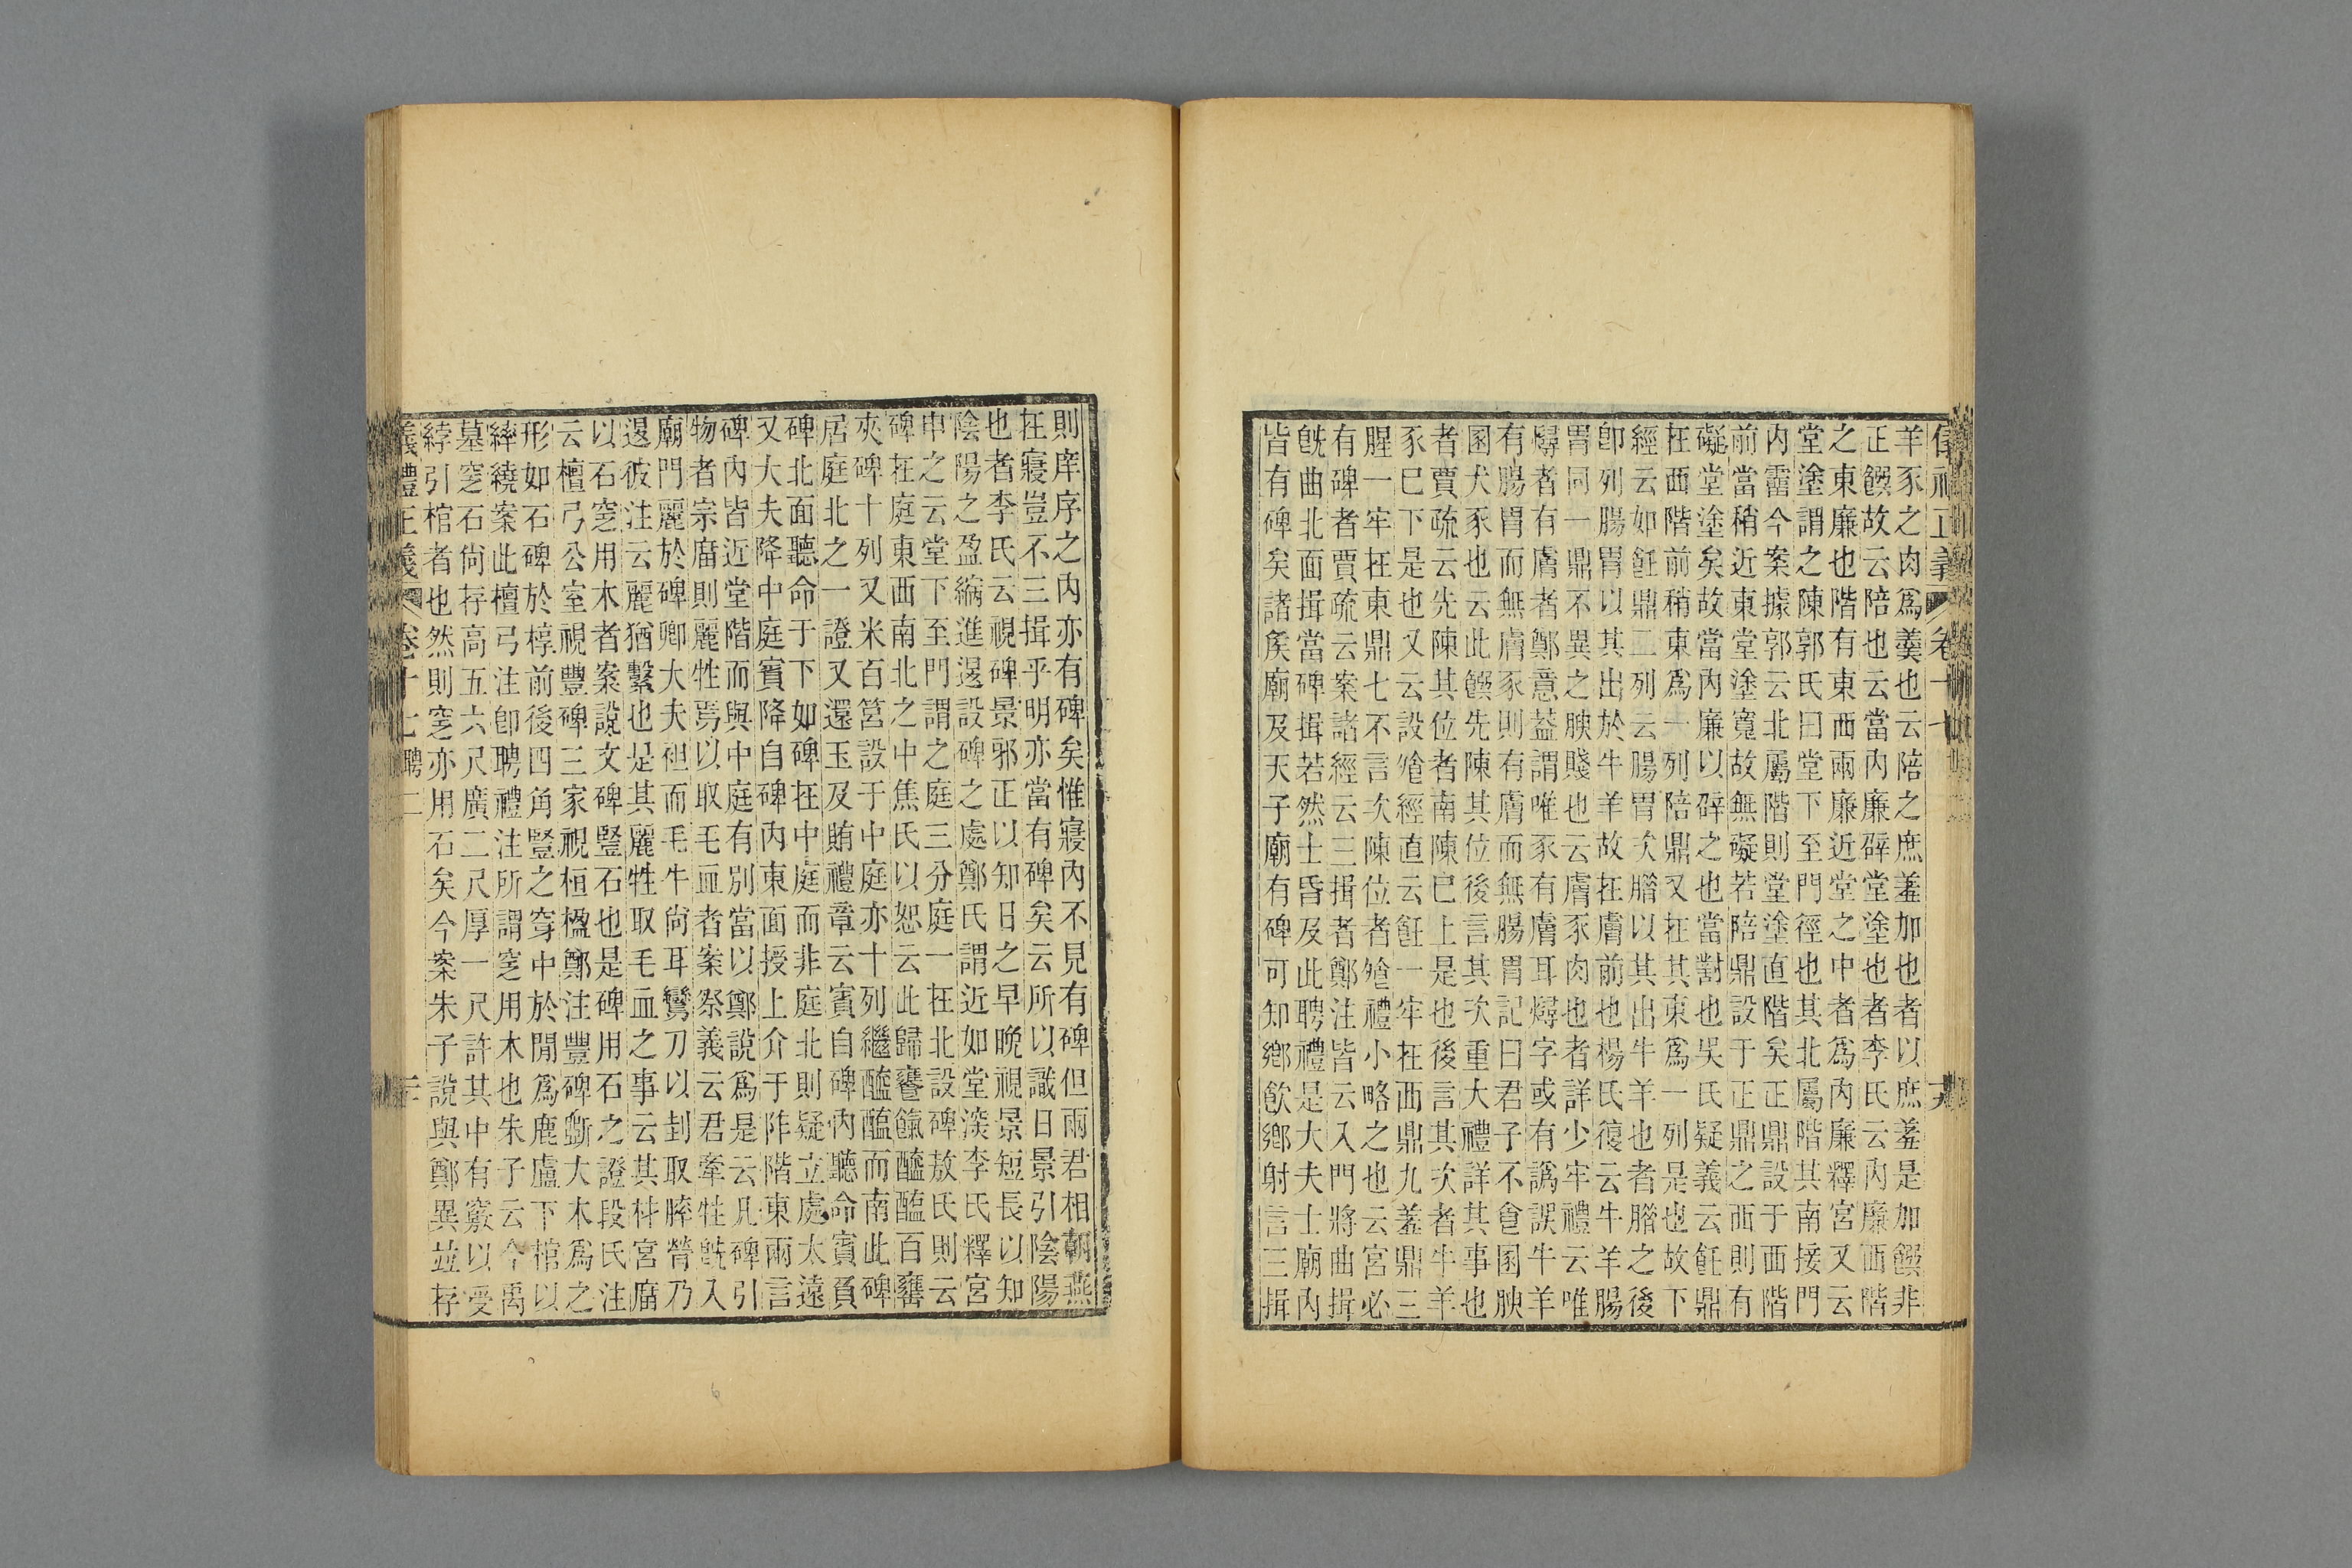 羊豕之肉爲羹也云陪之庶羞加也者以庶羞是加饌非
正饌故云陪也云當內廉辟堂塗也者李氏云內廉西階
之東廉也階有東西兩廉近堂之中者爲內廉釋宮又云
堂塗謂之陳郭氏曰堂下至門徑也其北屬階其南接門
內霤今案據郭云北屬階則堂塗直階矣正鼎設于西階
前當稍近東堂塗寬故無礙若陪鼎設于正鼎之西則有
礙堂塗矣故當內廉以辟之也當對也吳氏疑義云飪鼎
在西階前稍東爲一列陪鼎又在其東爲一列是也故下
經云如飪鼎二列云腸胃次腊以其出牛羊也者腊之後
卽列腸胃以其出於牛羊故在膚前也楊氏復云牛羊腸
胃同一鼎不異之腴賤也云膚豕肉也者詳少牢禮云唯
燖者有膚者鄭意蓋謂唯豕有膚耳燖字或有譌誤牛羊
有腸胃而無膚豕則有膚而無腸胃記曰君子不食圂腴
圂犬豕也云此饌先陳其位後言其次重大禮詳其事也
者賈疏云先陳其位者南陳巳上是也後言其次者牛羊
豕巳下是也又云設飧經直云飪一牢在西鼎九羞鼎三
腥一牢在東鼎七不言次陳位者飧禮小略之也云宮必
有碑者賈疏云案諸經云三揖者鄭注皆云入門將曲揖
旣曲北面揖當碑揖若然士昏及此聘禮是大夫士廟內
皆有碑矣諸矦廟及天子廟有碑可知鄉飮鄉射言三揖
則庠序之內亦有碑矣惟寢內不見有碑但兩君相朝燕
在寢豈不三揖乎明亦當有碑矣云所以識日景引陰陽
也者李氏云視碑景邪正以知日之早晚視景短長以知
陰陽之盈縮進退設碑之處鄭氏謂近如堂深李氏釋宮
申之云堂下至門謂之庭三分庭一在北設碑敖氏則云
碑在庭東西南北之中焦氏以恕云此歸饔餼醯醢百罋
夾碑十列又米百筥設于中庭亦十列繼醯醢而南此碑
居庭北之一證又還玉及賄禮章云賓自碑內聽命賓負
碑北面聽命于下如碑在中庭而非庭北則疑立處太遠
又大夫降中庭賓降自碑內東面授上介于阼階東兩言
碑內皆近堂階而與中庭有別當以鄭說爲是云凡碑引
物者宗廟則麗牲焉以取毛血者案祭義云君牽牲旣入
廟門麗於碑卿大夫袒而毛牛尙耳鸞刀以刲取膟膋乃
退彼注云麗猶繫也是其麗牲取毛血之事云其材宮廟
以石窆用木者案說文碑豎石也是碑用石之證段氏注
云檀弓公室視豐碑三家視桓楹鄭注豐碑斲大木爲之
形如石碑於椁前後四角豎之穿中於閒爲鹿盧下棺以
繂繞案此檀弓注卽聘禮注所謂窆用木也朱子云今禹
墓窆石尙存高五六尺廣二尺厚一尺許其中有竅以受
綍引棺者也然則窆亦用石矣今案朱子說與鄭異竝存
義禮正義 卷十七 聘二